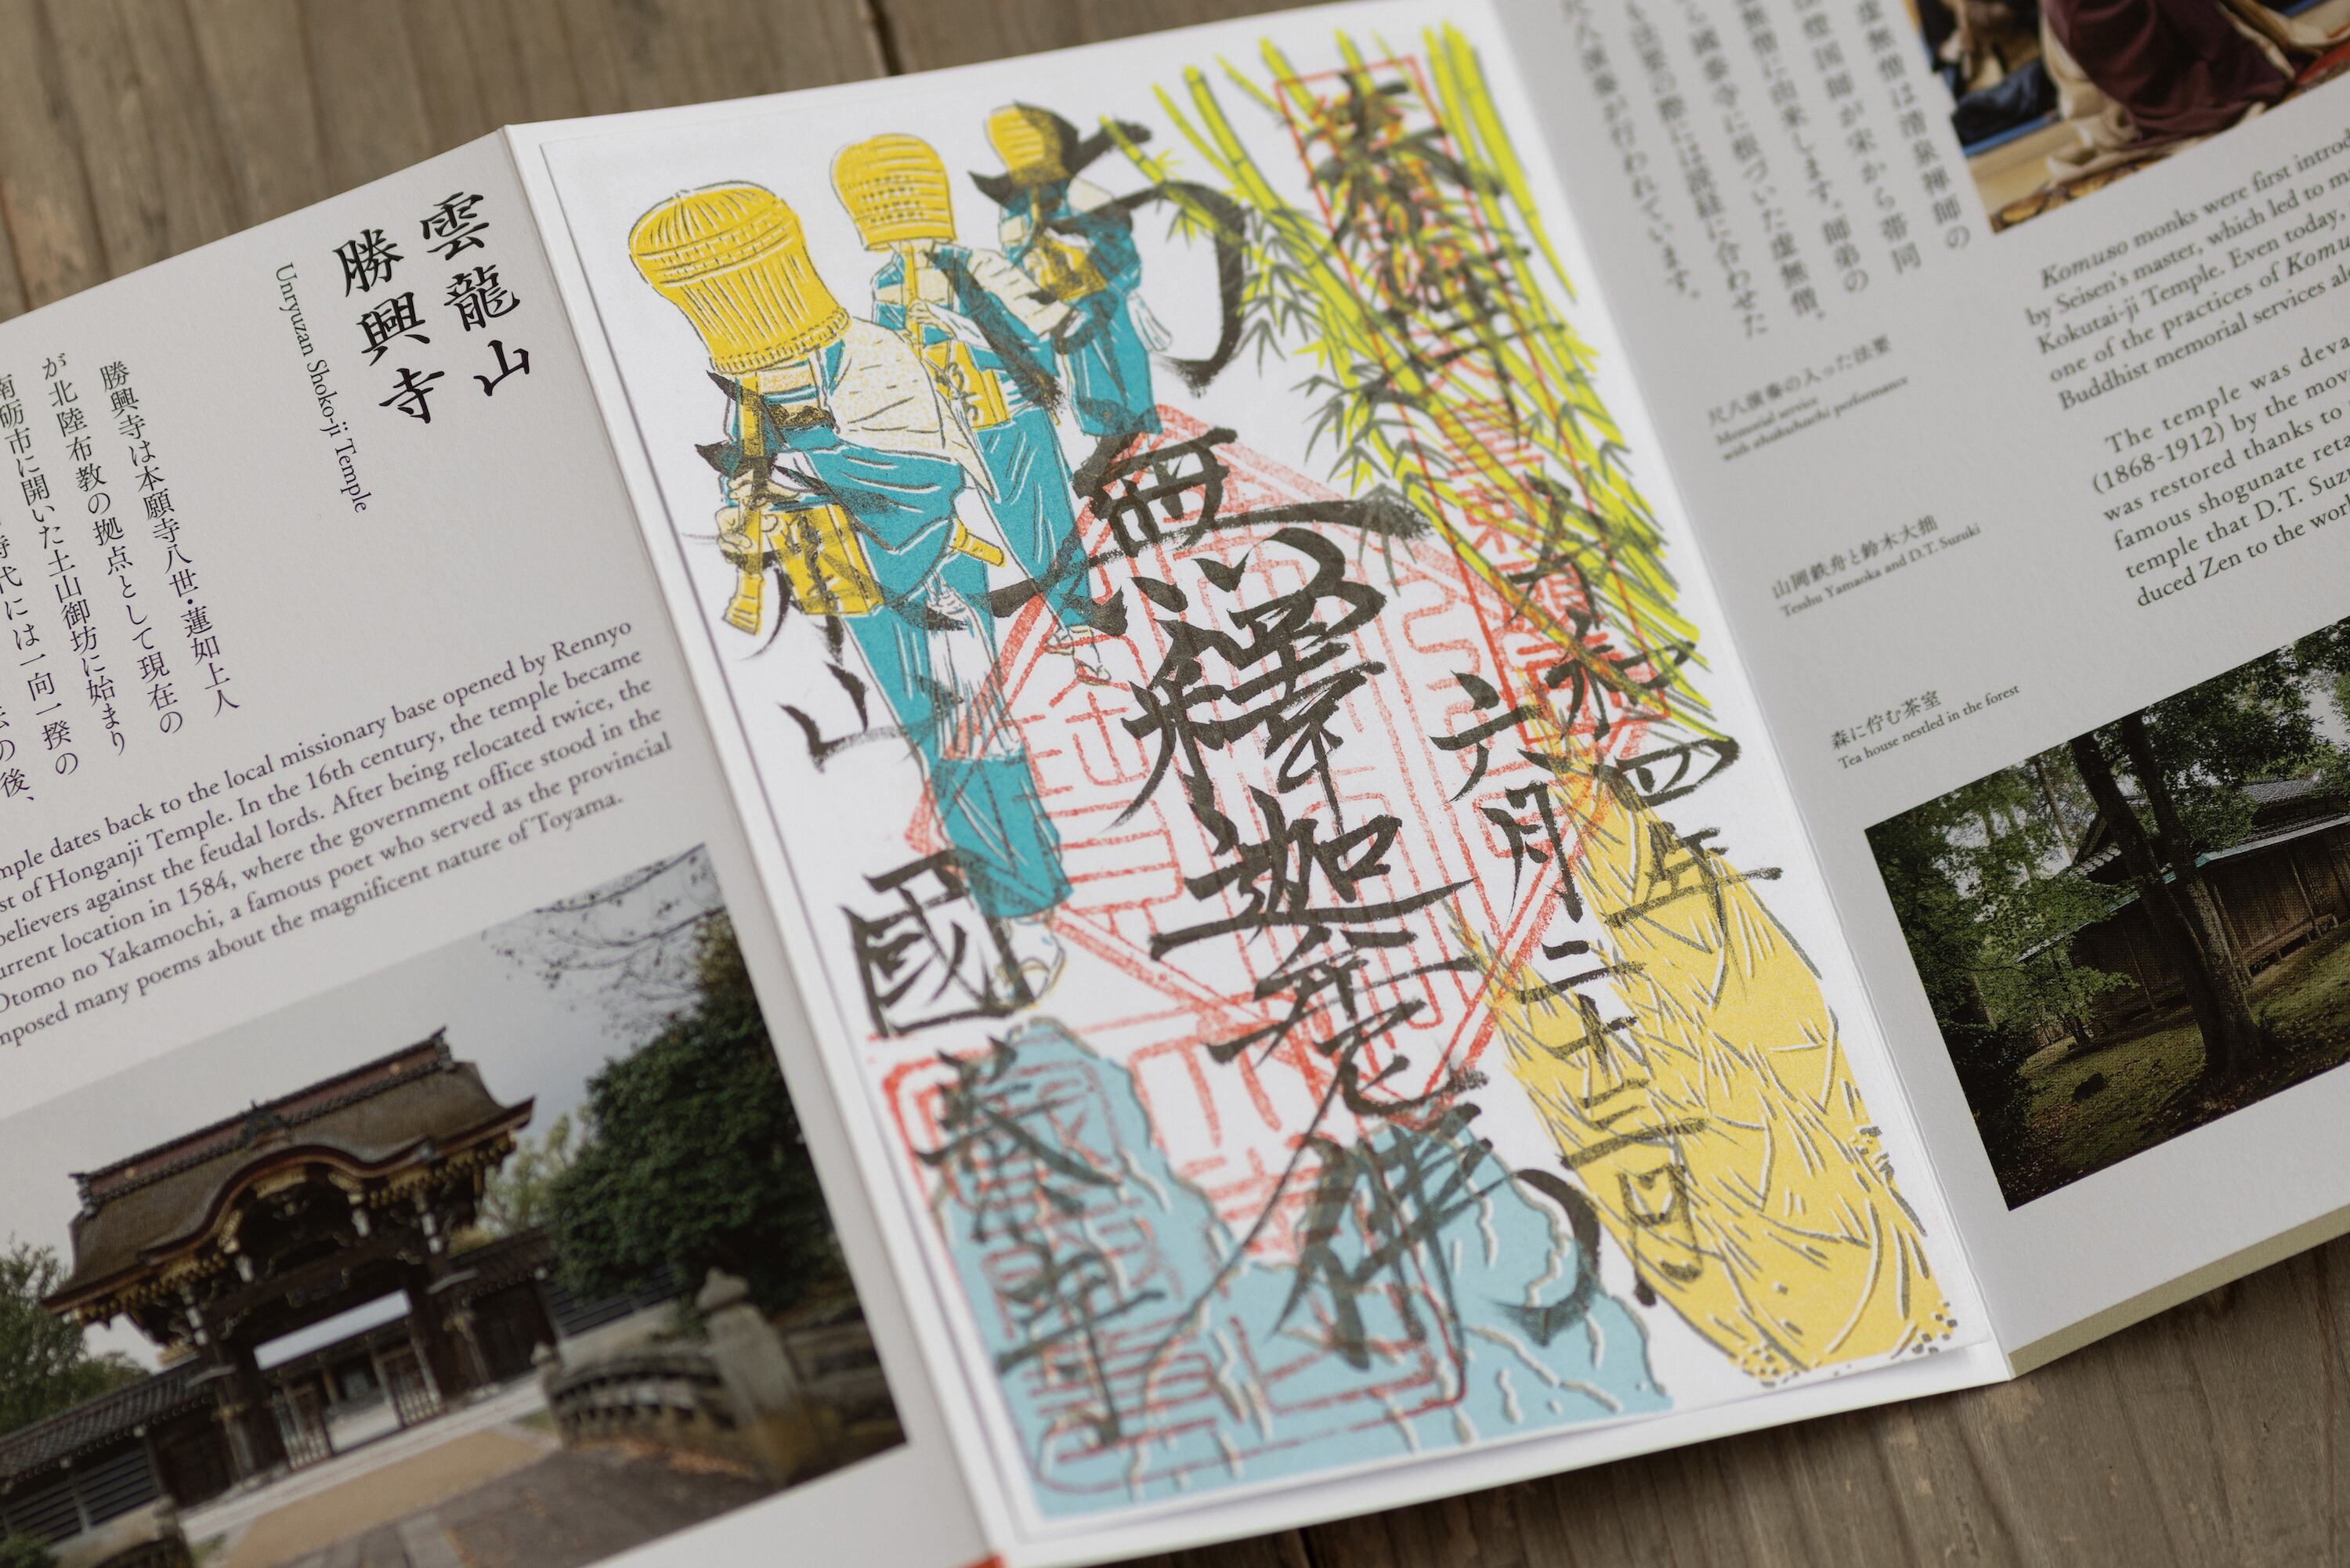 雲龍山
勝興寺
Unryuzan Shoko-ji Temple
勝興寺は本願寺八世・蓮如上人
が北陸布教の拠点として現在の
南砺市に開いた土山御坊に始まり
時代には一向一揆の
後、
mple dates back to the local missionary base opened by Rennyo
st of Honganji Temple. In the 16th century, the temple became
believers against the feudal lords. After being relocated twice, the
urrent location in 1584, where the government office stood in the
Otomo no Yakamochi, a famous poet who served as the provincial
mposed many poems about the magnificent nature of Toyama.
奉拝
令和四年
六月二十三日
西
釋迦牟尼佛
山
國泰寺
虚無僧は清泉禅師の
国師が宋から帯同
虚無僧に由来します。師弟の
ら國泰寺に根づいた虚無僧。
も法要の際には読経に合わせた
尺八演奏が行われています。
尺八演奏の入った法要
Memorial service
with shakuhachi performance
山岡鉄舟と鈴木大拙
Tesshu Yamaoka and D.T. Suzuki
森に佇む茶室
Tea house nestled in the forest
Komuso monks were first introd
by Seisen's master, which led to m
Kokutai-ji Temple. Even today,
one of the practices of Komu
Buddhist memorial services al
The temple was deva
(1868-1912) by the mov
was restored thanks to
famous shogunate reta
temple that D.T. Suz
duced Zen to the wor